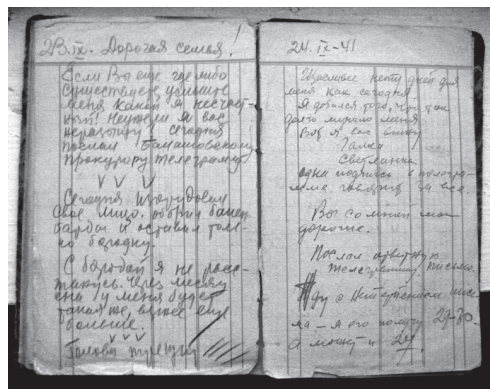 23.IX. Дорогая семья!
Если Вы еще где либо
существуете, услышьте
меня какой я несчаст-
ный! Неужели я вас
не разыщу. Сегодня
послал Балашовскому
прокурору телеграмму
V V V
Сегодня
свое лицо. обрил бакен-
барды и оставил толь-
ко бородку.
С бородой я не расс-
танусь. Через месяц
она у меня будет
такая же, даже еще
больше.
V V V
Голова
24.IX-41
Счастливее нету дней для
меня как сегодня
Я добился того, что так
долго мучило меня
Вот я вас вижу
Галка
Светланка
одна подпись в телеграм-
ме говорит за все.
Вы со мной мои
дорогие.
Послал ответную
телеграмму, письмо.
Жду с нетерпением пись-
ма – я его получу 29-30-
а может и 28